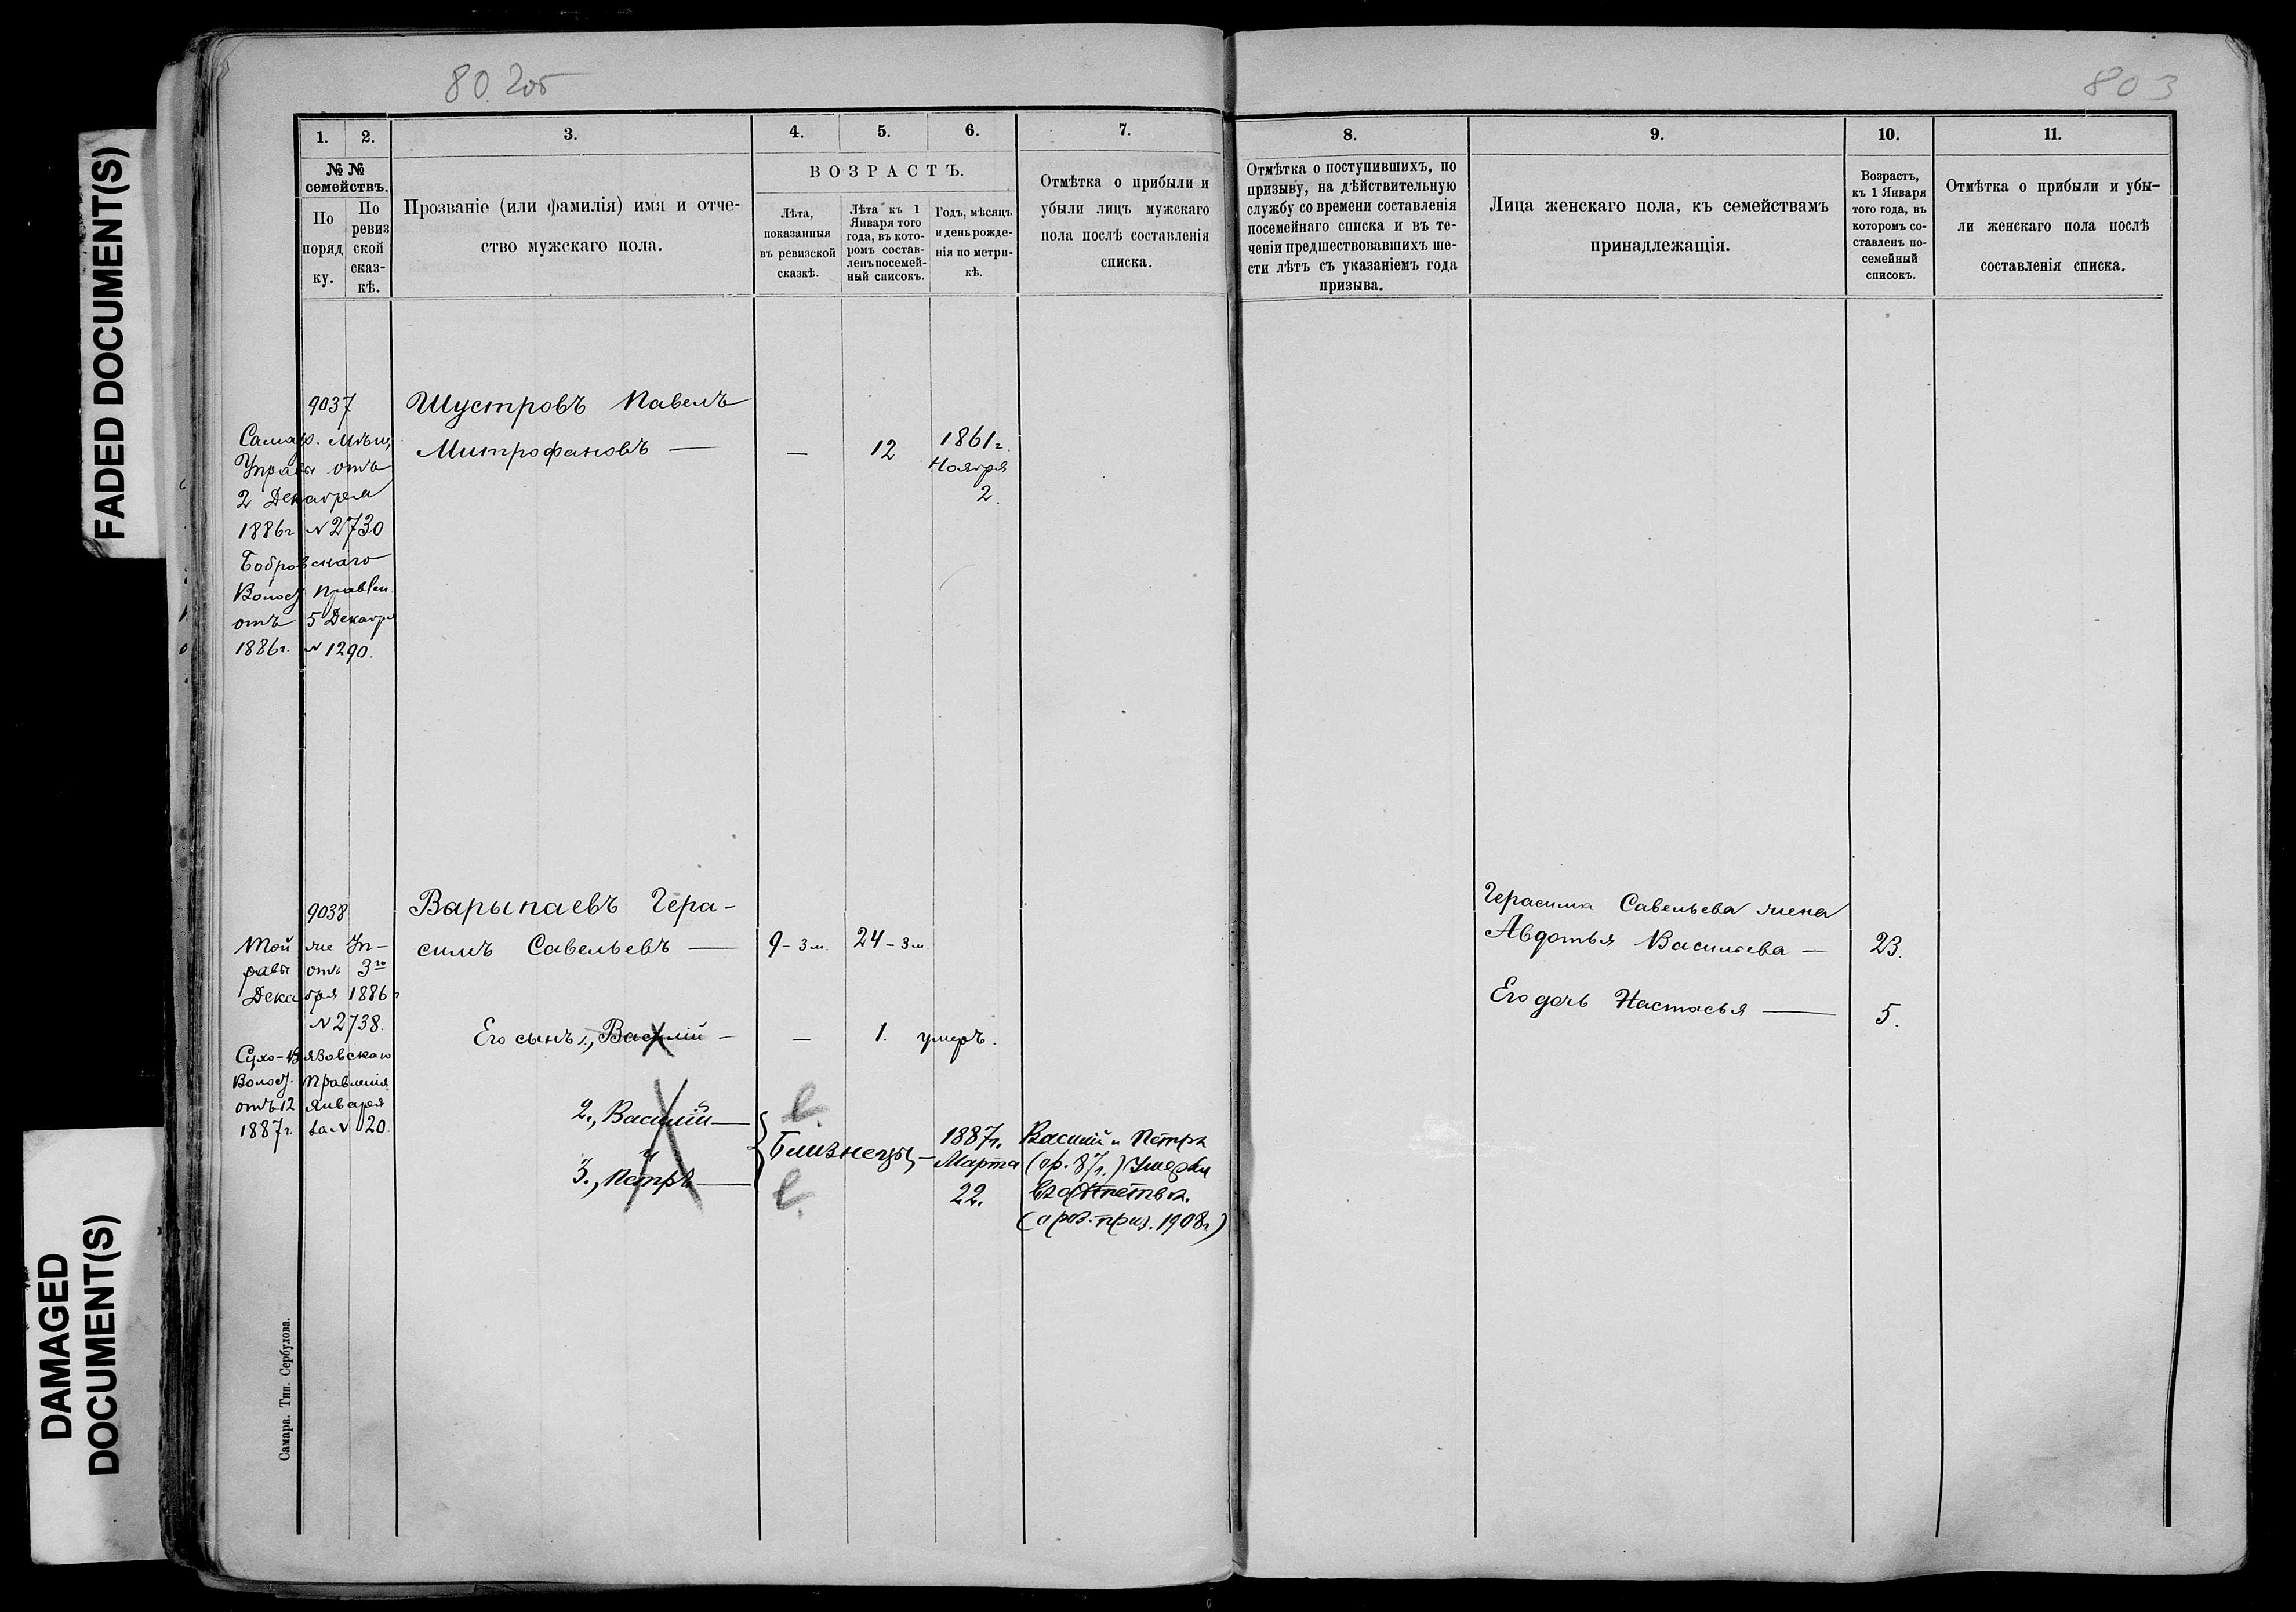 FADED DOCUMENT(S)
DAMAGED
DOCUMENT(S)
802об
803
1. 2. 3. 4. 5. 6. 7.
№ №
семействъ.
По
поряд
ку.
По
ревиз
ской
сказ-
кѣ.
Прозваніе (или фамилія) имя и отче-
ство мужскаго пола.
ВОЗРАСТЪ.
Лѣта,
показанныя
въ ревизской
сказкѣ.
Лѣта къ 1
Января того
года, въ кото-
ромъ состав-
ленъ посемей-
ный списокъ.
Годъ, мѣсяцъ
и день рожде-
нія по метри-
кѣ.
Отмѣтка о прибыли и
убыли лицъ мужскаго
пола послѣ составленія
списка.
9037
Самар. Мѣщ.
Управы отъ
2 Декабря
1886г №2730
Бобровскаго
Волост Правлен.
отъ 5 Декабря
1886г. №1290.
Шустровъ Павелъ
Митрофановъ — — 12
1861г.
Ноября
2.
9038
Той же Уп-
равы отъ 3го
Декабря 1886г
№2738.
Сухо-Вязовскаго
Волост. Правленія
отъ 12 Января
1887г. за № 20.
Варыпаевъ Гера-
симъ Савельевъ — 9-3м. 24-3м
Его сынъ 1., Василій — — 1. умеръ.
2., Василій —
и
3., Петръ —
Близнецы, —
1887г.
Марта
22.
Василій и Петръ
(ср. 87г.) умерли
(ароз. приз. 1908г)
8. 9. 10. 11.
Отмѣтка о поступившихъ, по
призыву, на дѣйствительную
службу со времени составленія
посемейнаго списка и въ те-
ченіи предшествовавшихъ ше-
сти лѣтъ съ указаніемъ года
призыва.
Лица женскаго пола, къ семействамъ
принадлежащія.
Возрастъ,
къ 1 Января
того года, въ
которомъ со-
ставленъ по-
семейный
списокъ.
Отмѣтка о прибыли и убы-
ли женскаго пола послѣ
составленія списка.
Герасима Савельева жена
Авдотья Васильева — 23.
Его дочь Настасья — 5.
Самара. Тип. Сербулова.